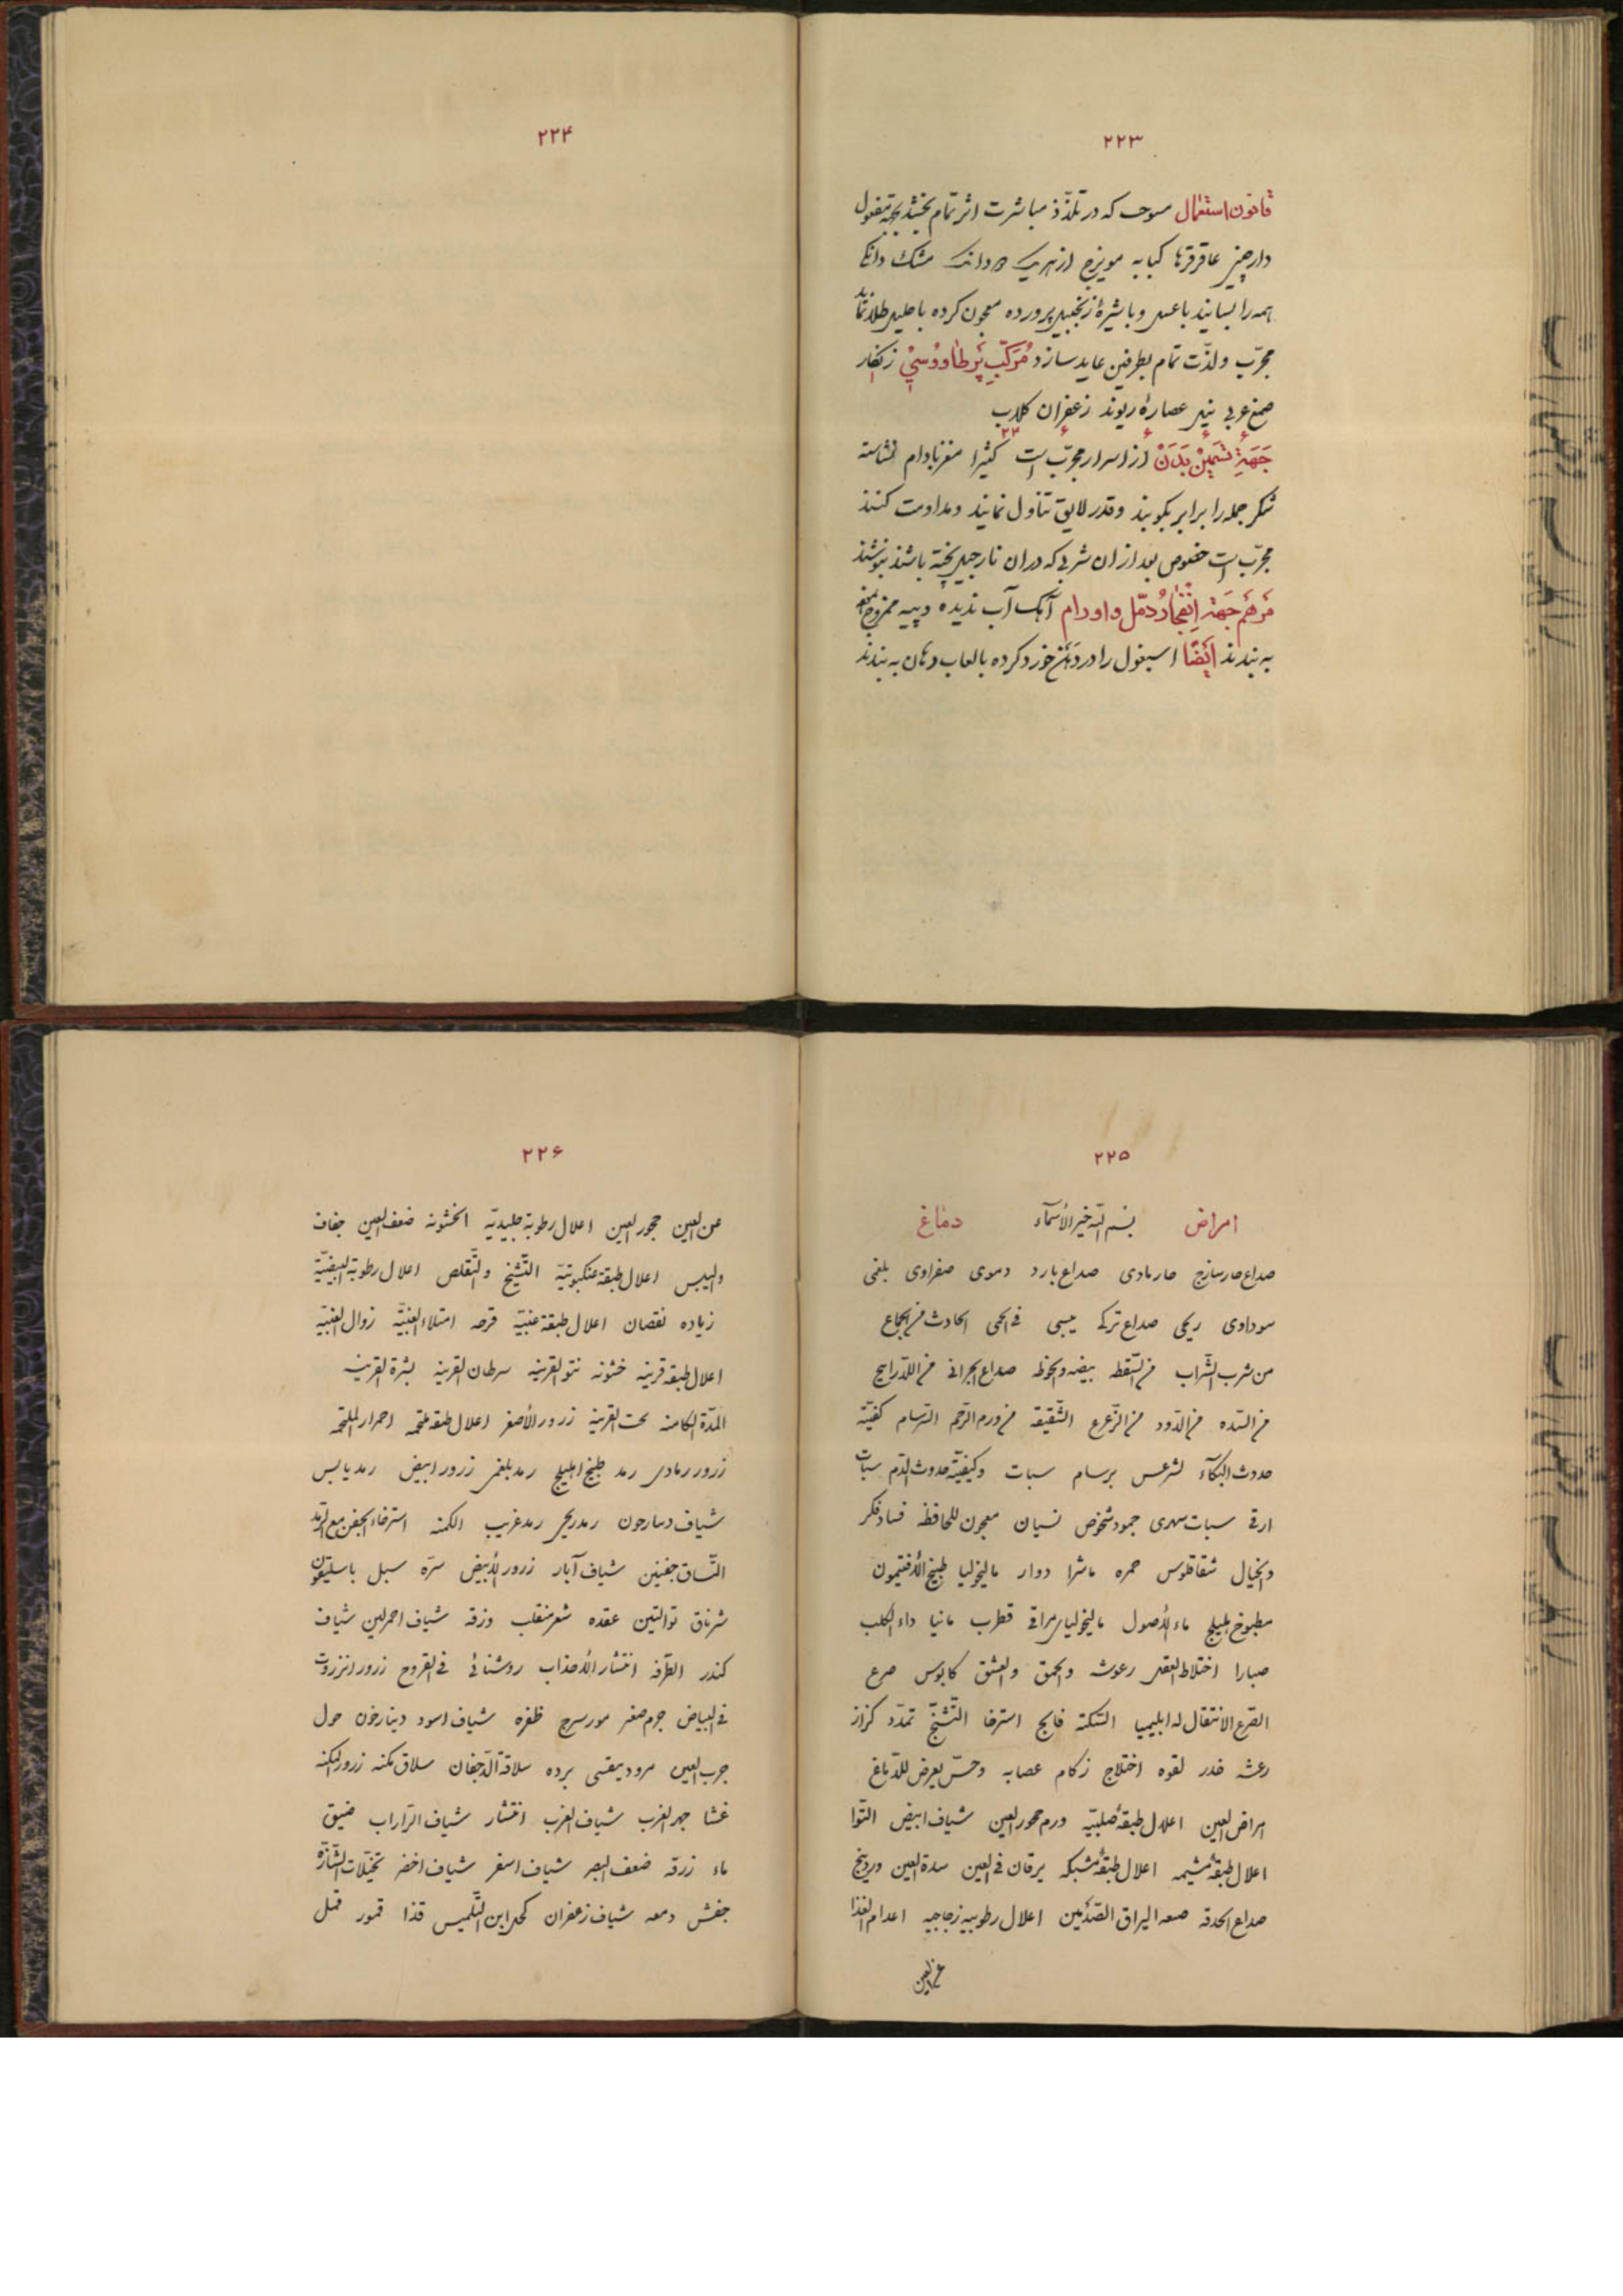 ۲۲۳
قانون استعمال مسوحی که در تلذّذ مباشرت اثر تمام بخشد بجهة مفعول
دارچینی عاقرقرحا کبابه مویزج از هریک دانک مشک دانکی
همه را بسایند با عسل و با شیرهٔ زنجبیل پرورده معجون کرده با حلیل طلا نماید
مجرّب ولذّت تمام بطرفین عاید سازد مُرَکّبِ پَرِ طٰاووُسیْ زنکار
صمغ عربی نیل عصارهٔ ریوند زعفران کلاب
جَهَةِ تَسْمینْ بَدَنْ از اسرار مجرّب است کثیرا مغز بادام نشاسته
شکر جمله را برابر بکوبند و قدر لایق تناول نمایند و مداومت کنند
مجرّب است خصوص بعد از ان شربی که در ان نارجیل پخته باشند بنوشند
مَرهَم جَهَة اِنْفِجٰارُ دمّل و اورام آهک آب ندیده و پیه ممزوج نموده
به بندند اَیْضًا اسبغول را در دهن خورد کرده با لعاب دهان به بندند
۲۲۴
۲۲۵
امراض بسم الله خیر الأسمآء دماغ
صداع حار سازج حار مادی صداع بارد دموی صفراوی بلغمی
سوداوی ریحی صداع ترکی یبسی فی الحمی الحادث من الجماع
من شرب الشّراب من السّقطه بیضه والخوظه صداع البحرانی من اللذّرایح
من السّده من الدّود من الزّعزع الشّقیقه من ورم الرّحم السّرسام کفیّته
حدوث البکآء لشرغس برسام سبات وکیفیّة حدوث الدّم سبات
ارقی سبات سهری جمود شخوص نسیان معجون للحافظه فساد فکر
والخیال شقاقلوس حمره ماشرا دوار مالیخولیا طبیخ الأفتیمون
مطبوخ هلیلج ماء الأصول مالیخولیا مراقی قطرب مانیا داء الکلب
صبارا اختلاط العقل رعوثه والحمق والعشق کابوس صرع
الصّرع الانتقال له ابلیمیا السّکته فالج استرخا التّشنّج تمدّد کزاز
رعشه خدر لقوه اختلاج زکام عصابه وحسّ یعرض للدّماغ
امراض العین اعلال طبقهٔ صلبیّه ورم محور العین شیاف ابیض التوا
اعلال طبقهٔ مشیمه اعلال طبقهٔ شبکه یرقان فی العین سدة العین وردینج
صداع الحدقه الصّدغین اعلال رطوبیه زجاجیه اعدام الغذا
عن العین
۲۲۶
عن العین جحور العین اعلال رطوبة جلیدیّه الخشونه ضعف العین جفاف
والیبس اعلال طبقهٔ عنکبوتیّه التّشنّج والتّقلص اعلال رطوبة البیضیّة
زیاده نقصان اعلال طبقه عنبیّه قرحه امتلاء العنبیّه زوال العنبیّه
اعلال طبقه قرنیه خشونه نتو القرنیه سرطان القرنیه بثرة القرنیه
المدّة الکامنه تحت القرنیه زرور الأصفر اعلال طبقه ملتحمه احمرار الملتحمه
زرور رمادی رمد طبیخ اهلیلج رمد بلغمی زرور ابیض رمد یابس
شیاف دسارحون رمد ریحی رمد غریب الکمنه استرخاء الجفن مع الرمد
التّصاق جفنین شیاف آبار زرور الأبیض سرّه سبل باسلیقون
شرناق توالتین عقده شعر منقلب وزقه شیاف احمر لین شیاف
کندر الطّرفه انتشار الأهداب روشنائی فی القروح زرور انزروت
فی البیاض جرم صغیر مورسرج ظفره شیاف اسود دینارخون حول
جرب العین مرود بیقسی برده سلاقة الأجفان سلاق کمنه زرور الکمنه
غشا جهر الغرب شیاف الغرب انتشار شیاف الزاراب ضیق
ماء زرقه ضعف البصر شیاف اصفر شیاف اخضر تخیّلات الشازّة
جفش دمعه شیاف زعفران کحل ابن التّلمیس قذا قمور قمل